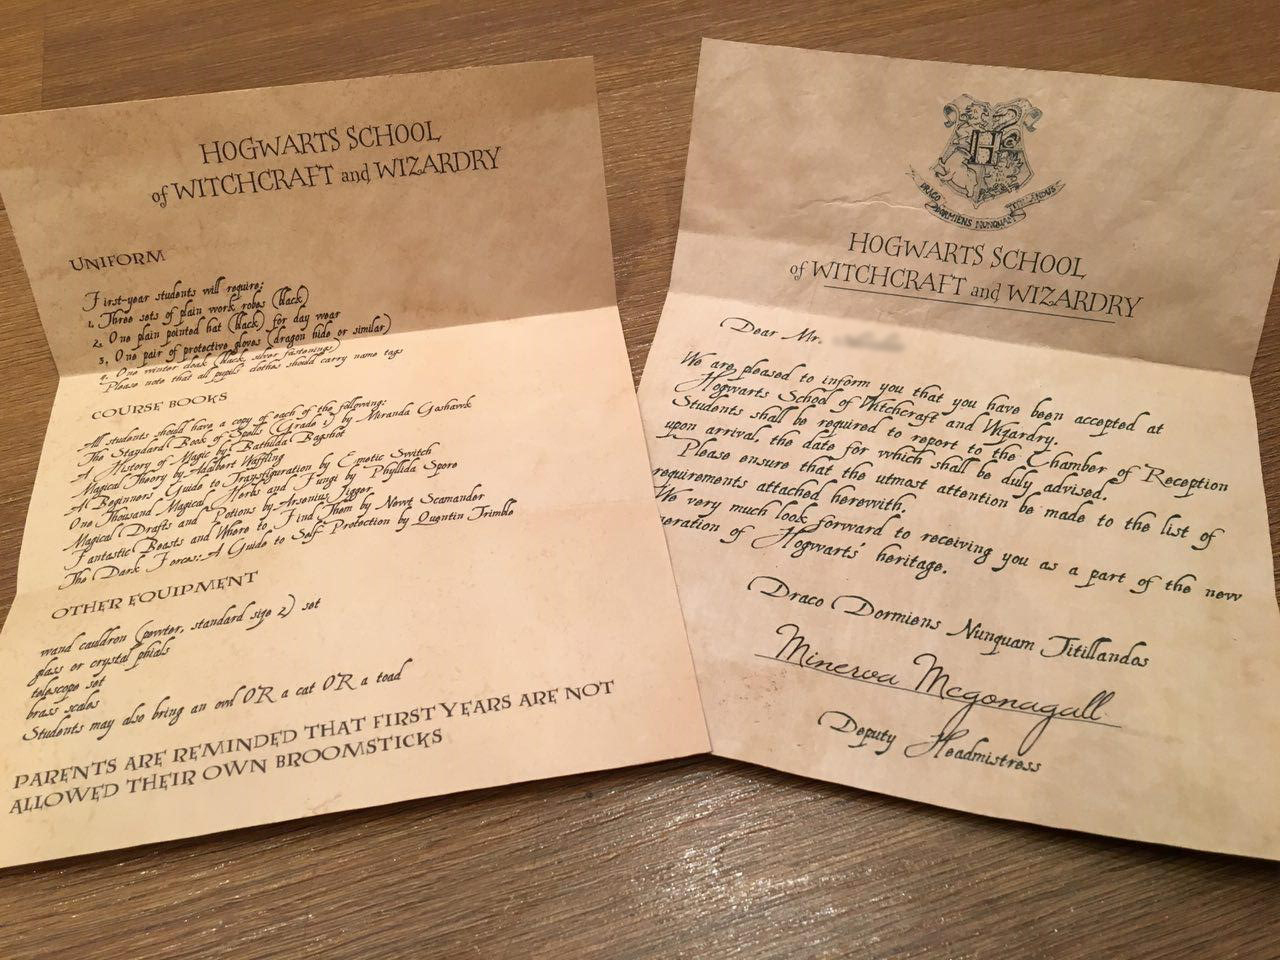 HOGWARTS SCHOOL
of WITCHCRAFT and WIZARDRY
UNIFORM
First-year students will require:
1. Three sets of plain work robes (black)
2. One plain pointed hat (black) for day wear
3. One pair of protective gloves (dragon hide or similar)
4. One winter cloak (black, silver fastenings)
Please note that all pupils clothes should carry name tags
COURSE BOOKS
All students should have a copy of each of the following:
The Standard Book of Spells (Grade 1) by Miranda Goshawk
A History of Magic by Bathilda Bagshot
Magical Theory by Adalbert Waffling
A Beginners Guide to Transfiguration by Emetic Switch
One Thousand Magical Herbs and Fungi by Phyllida Spore
Magical Drafts and Potions by Arsenius Jigger
Fantastic Beasts and Where to Find Them by Newt Scamander
The Dark Forces: A Guide to Self-Protection by Quentin Trimble
OTHER EQUIPMENT
wand cauldron (pewter, standard size 2) set
glass or crystal phials
telescope set
brass scales
Students may also bring an owl OR a cat OR a toad
PARENTS ARE REMINDED THAT FIRST YEARS ARE NOT
ALLOWED THEIR OWN BROOMSTICKS
H
DRACO DORMIENS NUNQUAM TITILLANDUS
HOGWARTS SCHOOL
of WITCHCRAFT and WIZARDRY
Dear Mr.
We are pleased to inform you that you have been accepted at
Hogwarts School of Witchcraft and Wizardry.
Students shall be required to report to the Chamber of Reception
upon arrival, the date for which shall be duly advised.
Please ensure that the utmost attention be made to the list of
requirements attached herewith.
We very much look forward to receiving you as a part of the new
neration of Hogwarts' heritage.
Draco Dormiens Nunquam Titillandos
Minerva Mcgonagall
Deputy Headmistress